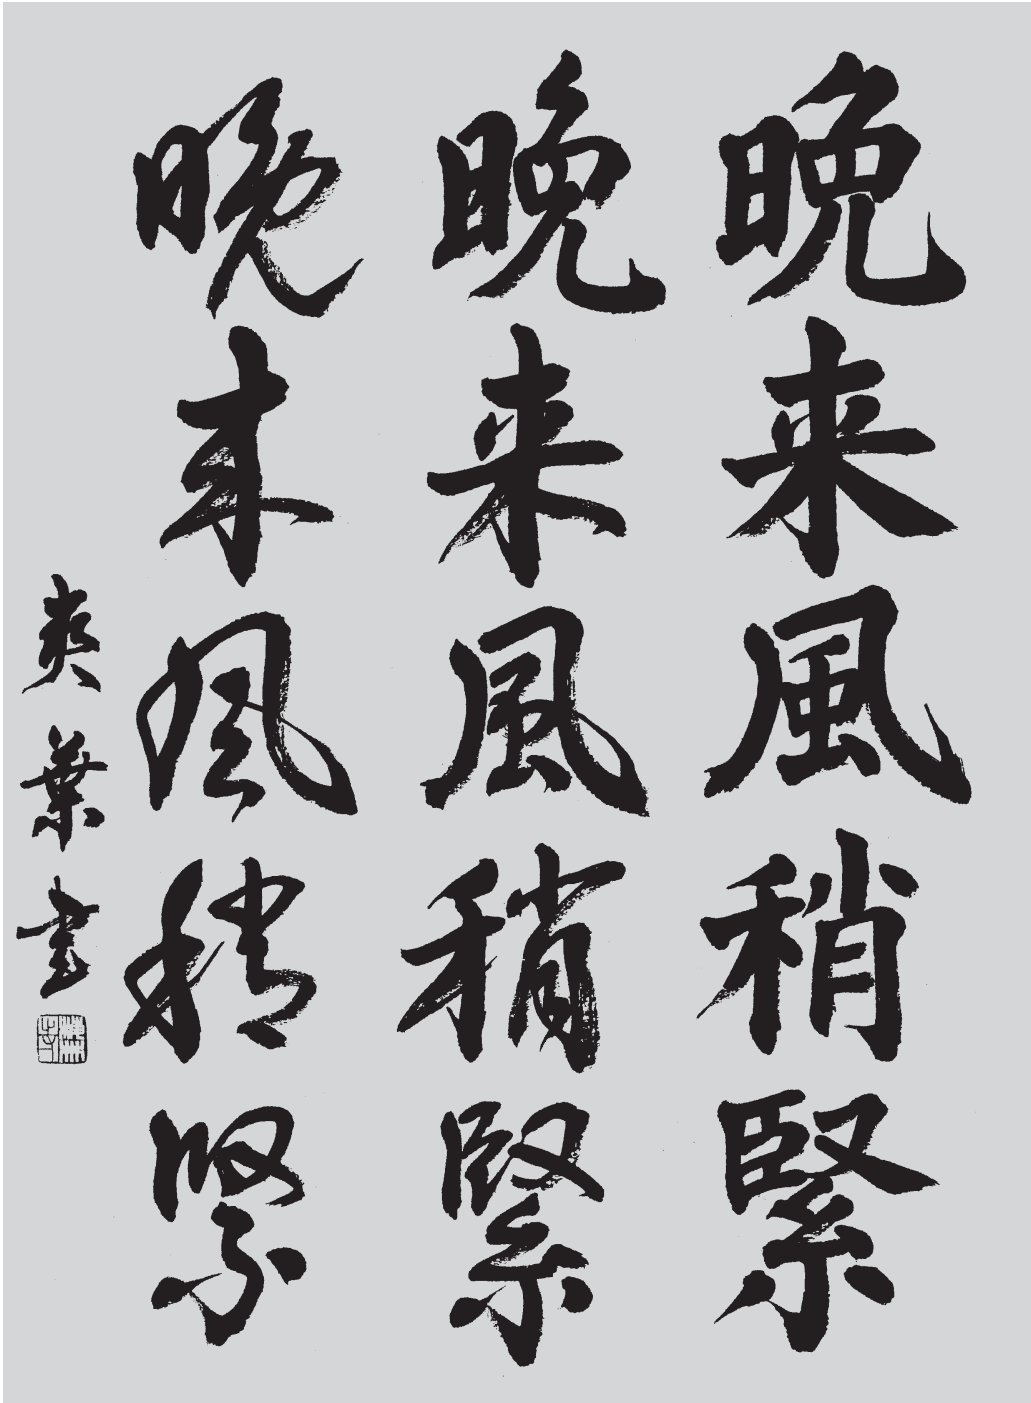 晚来風稍緊
晚来風稍緊
晚来風稍緊
爽葉書